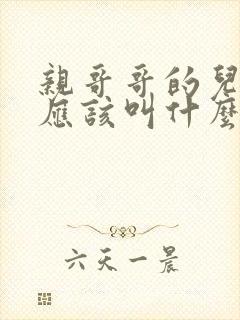 親哥哥的兒
應該叫什麼
六天一晨